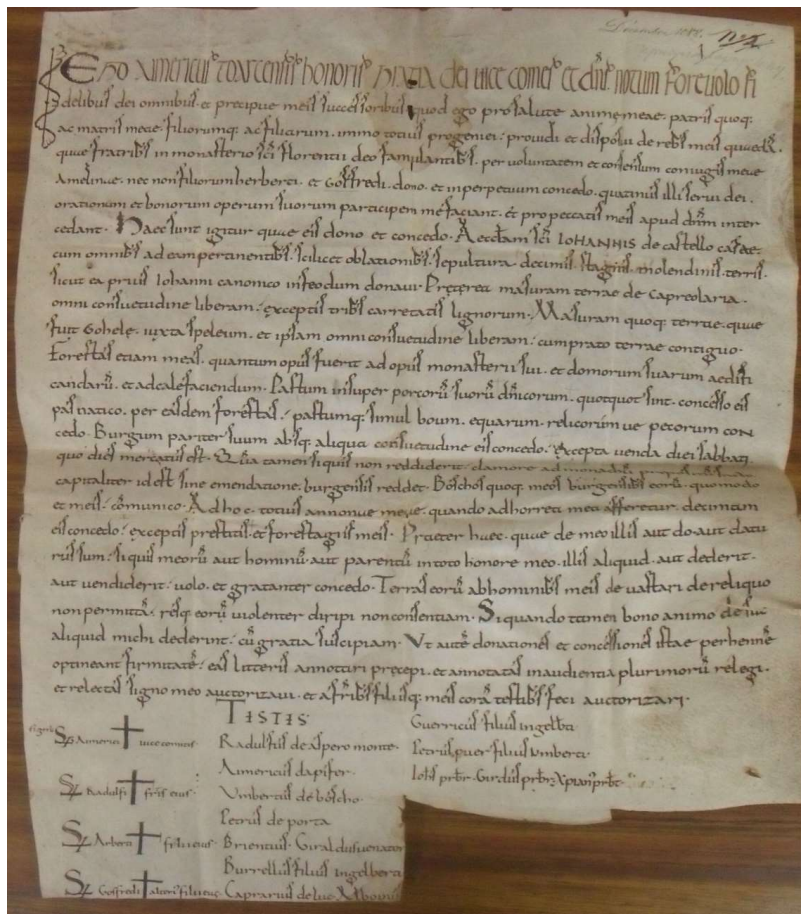 Ego Aimericus toarcensis honoris gratia dei vice comes et dns notum fore volo fi
delibus dei omnibus et precipue meis successoribus quod ego pro salute animę meae patris quoq;
ac matris meae filiorumq; ac filiarum immo totius progeniei providi et disposui de rebs meis quaedā
quae fratribs in monasterio sci florentii deo famulantibs per voluntatem et consensum coniugis meae
Amelinae nec non filiorum herberti et Gosfredi dono et inperpetuum concedo quatinus illi servi dei
orationum et bonorum operum suorum participem me faciant et pro peccatis meis apud dnm inter
cedant Haec sunt igitur quae eis dono et concedo Aeccłam sci IOHANNIS de castello
cum omnibs ad eam pertinentibs scilicet oblationibs sepultura decimis stagnis molendinis terris
sicut ea prius Iohanni canonico in feodum donavi Pręterea masuram terrae de capreolaria
omni consuetudine liberam exceptis tribs carretatis lignorum Masuram quoq; terrae quae
fuit Gohelę iuxta speleum et ipsam omni consuetudine liberam cum prato terrae contiguo
Forestas etiam meas quantum opus fuerit ad opus monasterii sui et domorum suarum aedifi
candarū et ad calefaciendum Pastum insuper porcorū suorū dnicorum quotquot sint concesso eis
pasnatico per easdem forestas pastumq; simul boum equarum relicorum ve pecorum con
cedo Burgum pariter suum absq; aliqua consuetudine eis concedo excepta venda diei sabbati
quo dies mercati est Qua tamen si quis non reddiderit clamore ad
capitaliter id est sine emendatione burgensis reddet Boschos quoq; meos burgensibs eorū quomodo
et meis cōmunico Ad hoc totius annonae meae quando ad horrea mea afferetur decimam
eis concedo exceptis prestitis et forestagiis meis Praeter haec quae de meo illis aut do aut datu
rus sum si quis meorū aut hominū aut parentū in toto honore meo illis aliquid aut dederit
aut vendiderit volo et gratanter concedo Terras eorū ab hominibs meis devastari de reliquo
non permittā resq; eorū violenter diripi non consentiam Si quando tamen bono animo de suo
aliquid michi dederint cū gratia suscipiam Ut autē donationes et concessiones istae perhennē
optineant firmitatē eas litteris annotari pręcepi et annotatas in audientia plurimorū relegi
et relectas signo meo auctorizavi et a fribs filiisq; meis corā testibs feci auctorizari
TESTES
S Aimerici vice comitis
S Radulfi fris eius
S Arberti filii eius
S Gosfredi alteri filii eius
Radulfus de aspero monte
Aimericus dapifer
Umbertus de boscho
Petrus de porta
Brientius Giraldus venator
Burrellus filius ingelberti
Caprarius
Guerricus filius ingelbti
Petrus puer filius umberti
Iohs prbr Girdus prbr Xpianꝰ prbr